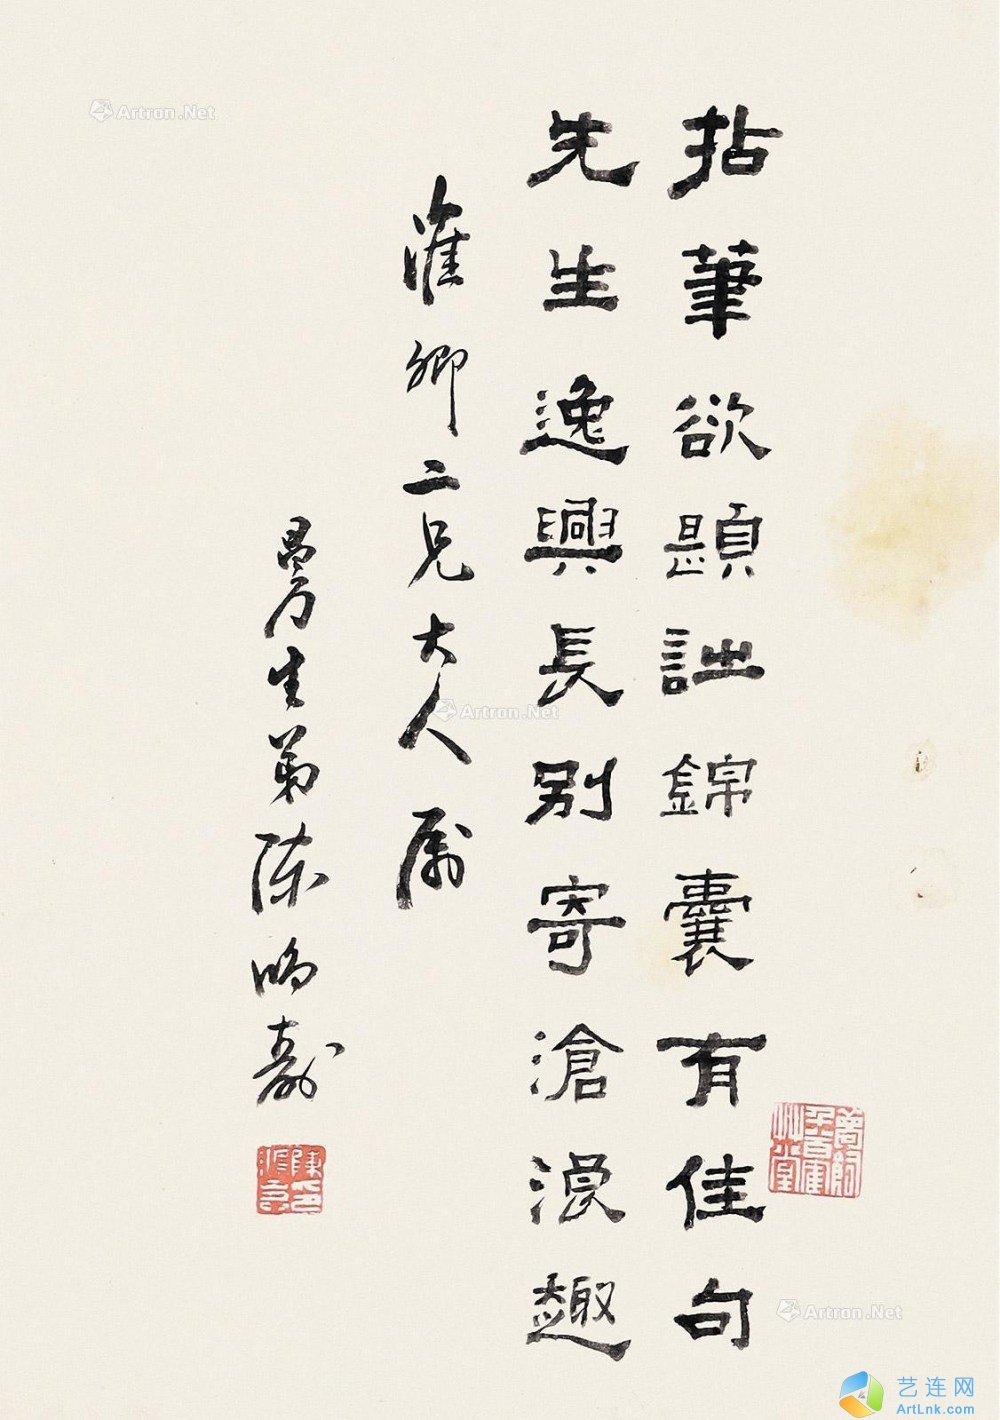 拈筆欲題詘錦囊有佳句
先生逸興長別寄滄浪趣
淮卿二兄大人属
曼生弟陳鴻壽
Artron.Net
Artron.Net
Artron.Net
艺连网
ArtLnk.com